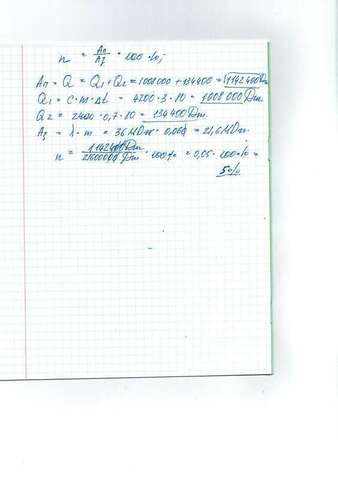 n = Aп/Aз · 100 %;
Aп = Q = Q1 + Q2 = 1008000 + 134400 = 1142400 Дж
Q1 = c · m · Δt = 4200 · 3 · 80 = 1008 000 Дж.
Q2 = 2400 · 0,7 · 80 = 134400 Дж.
Aз = λ · m = 36 МДж · 0,6 = 21,6 МДж.
n = 1142400 Дж/21600000 Дж · 100% = 0,05 · 100% =
5%